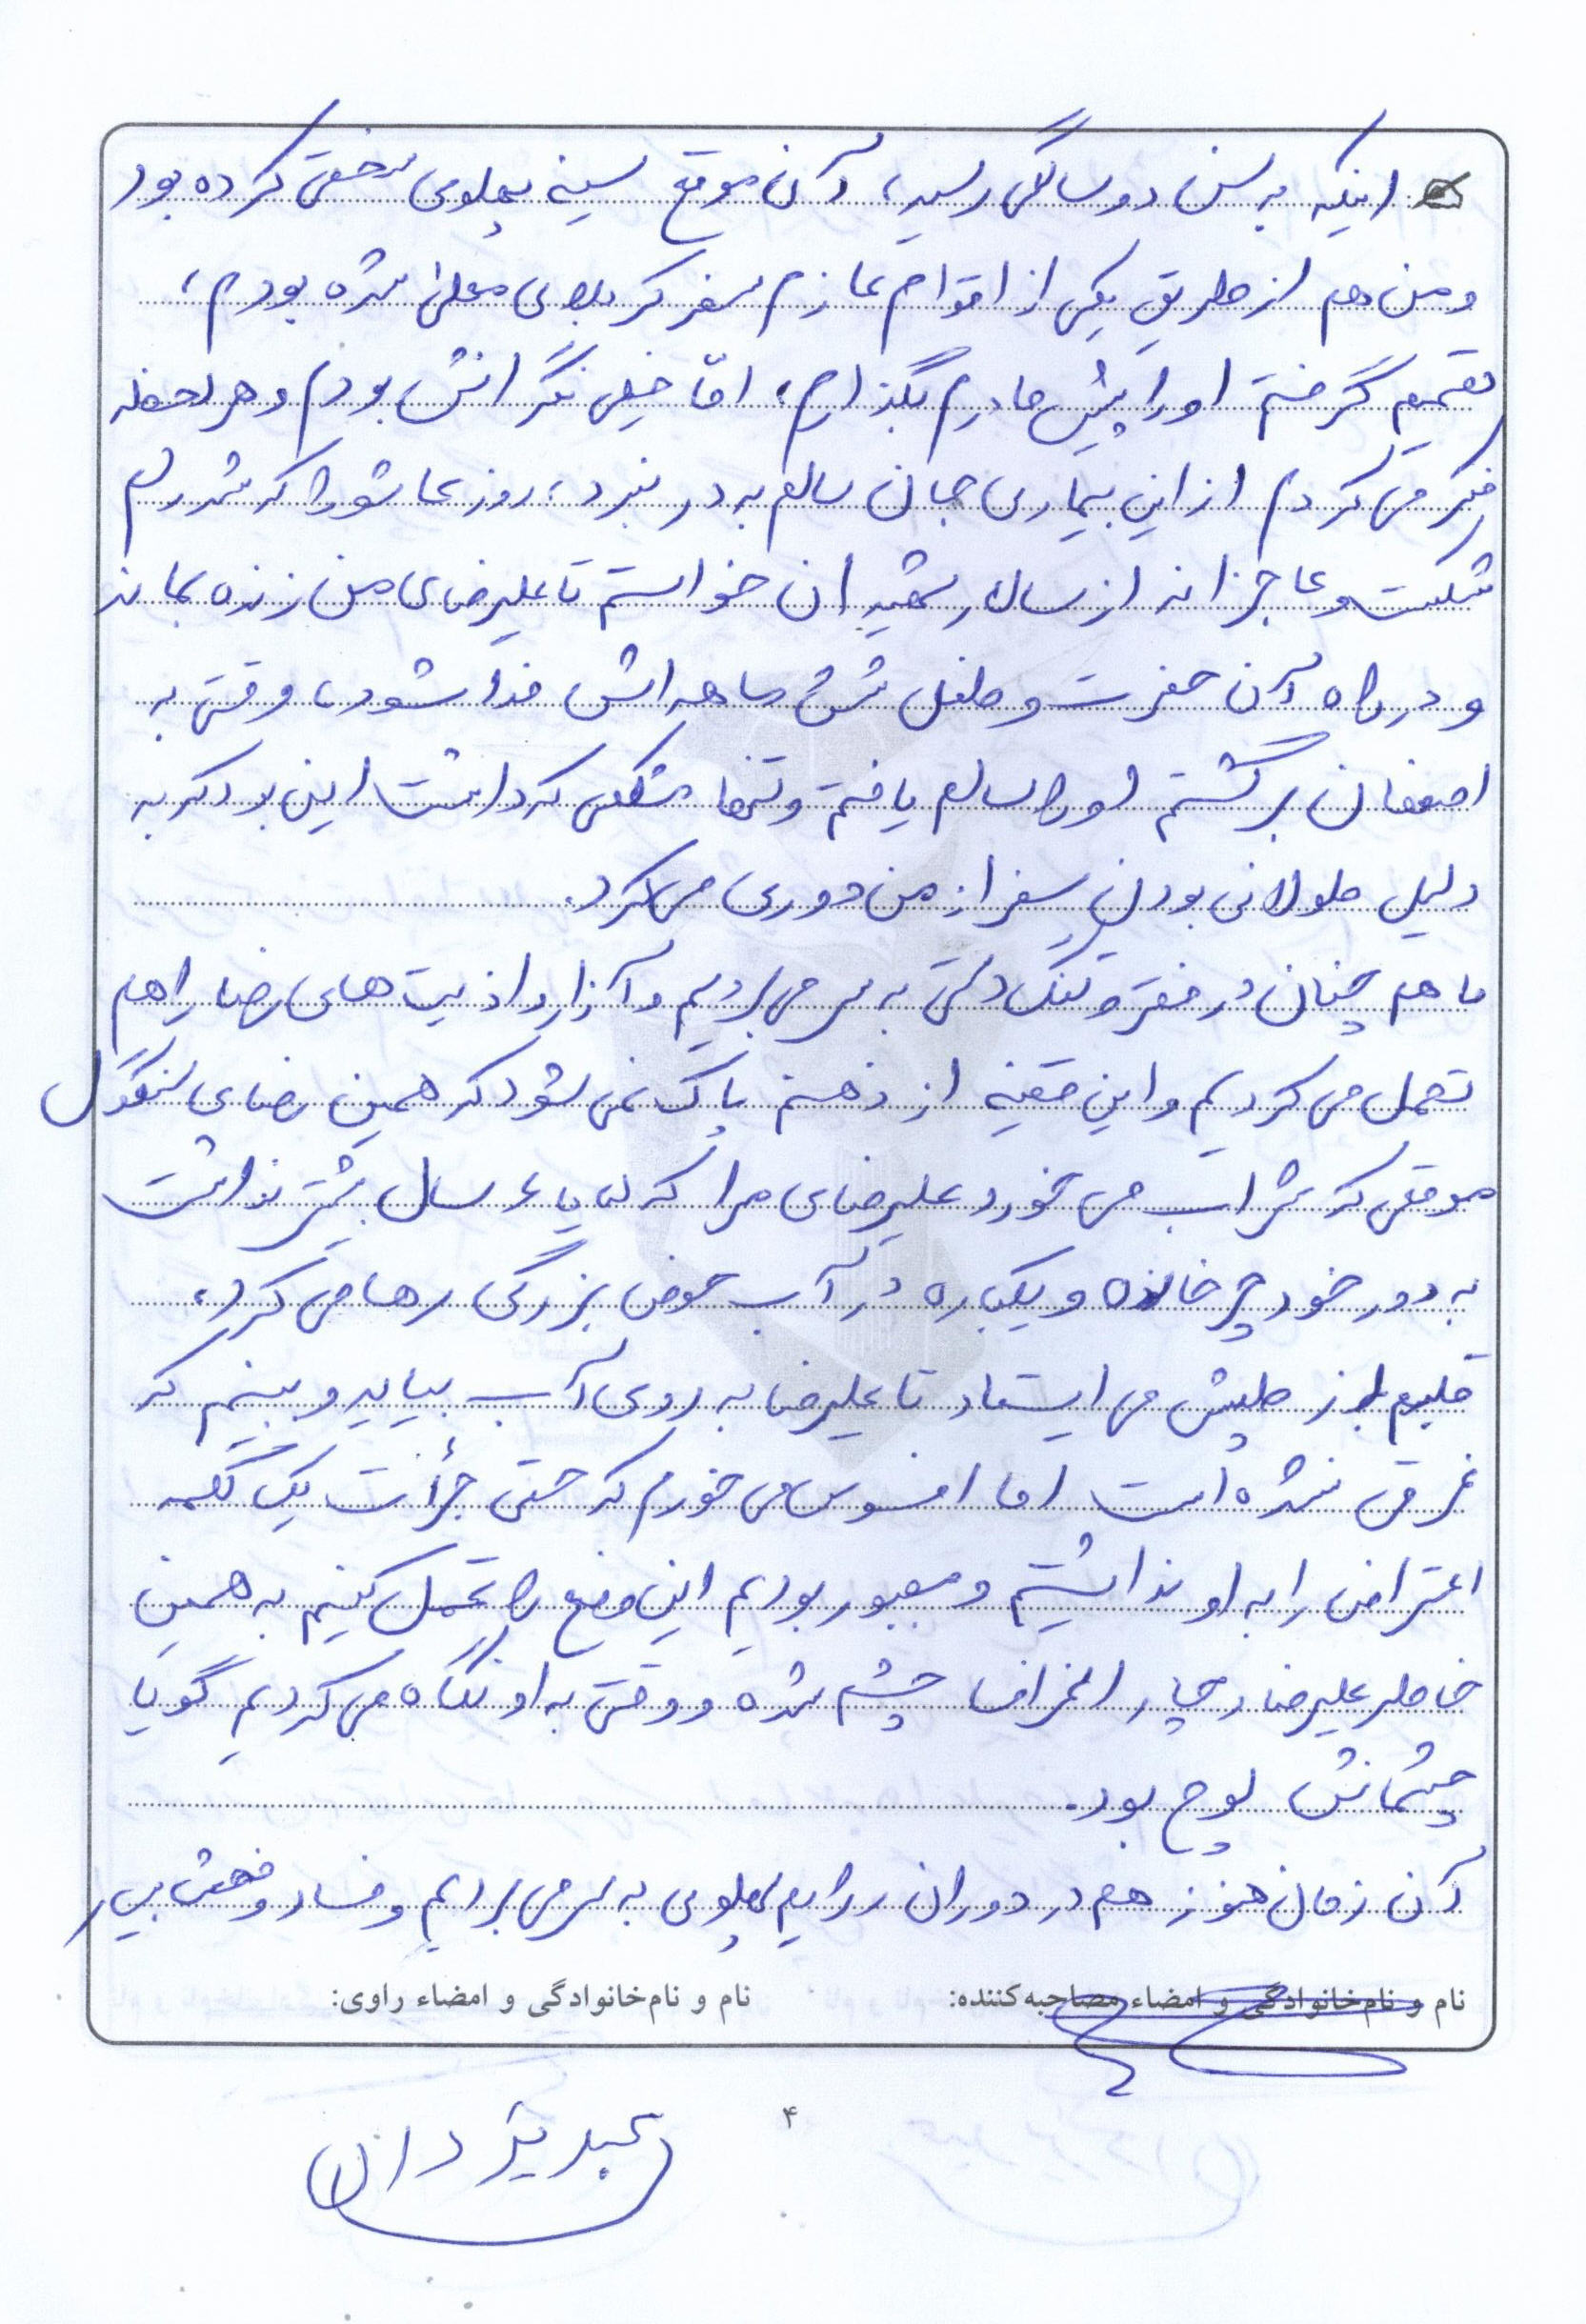 اینکه به سن دو سالگی رسید، آن موقع سینه پهلوی سختی کرده بود
و من هم از طریق یکی از اقوام عازم سفر کربلای معلی شده بودم،
تصمیم گرفتم او را پیش مادرم بگذارم، امّا خیلی نگرانش بودم و هر لحظه
فکر می کردم از این بیماری جان سالم به در نبرد، روز عاشورا که شد دلم
شکست و عاجزانه از سالار شهیدان خواستم تا علیرضای من زنده بماند
و در راه آن حضرت و طفل شش ماهه اش فدا شود، وقتی به
اصفهان برگشتم او را سالم یافتم و تنها مشکلی که داشت این بود که به
دلیل طولانی بودن سفر از من دوری می کرد.
ما هم چنان در فقر و تنگ دستی به سر می بردیم و آزار و اذیت های رضا را هم
تحمل می کردیم و این قضیه از ذهنم پاک نمی شود که همین رضای سنگدل
موقعی که شراب می خورد علیرضای مرا که یا ۶ سال بیشتر نداشت
به دور خود چرخانده و یکباره در آب حوض بزرگی رها می کرد،
قلبم از طپش می ایستاد تا علیرضا به روی آب بیاید و ببینم که
غرق نشده است اما افسوس می خورم که حتی جرأت یک کلمه
اعتراض را به او نداشتیم و مجبور بودیم این وضع را تحمل کنیم به همین
خاطر علیرضا دچار انحراف چشم شده و وقتی به او نگاه می کردیم گویا
چشمانش لوچ بود.
آن زمان هنوز هم در دوران رژیم پهلوی به سر می بردیم و فساد و فحش بسیار
نام و نام‌خانوادگی و امضاء مصاحبه‌کننده:
نام و نام‌خانوادگی و امضاء راوی:
۴